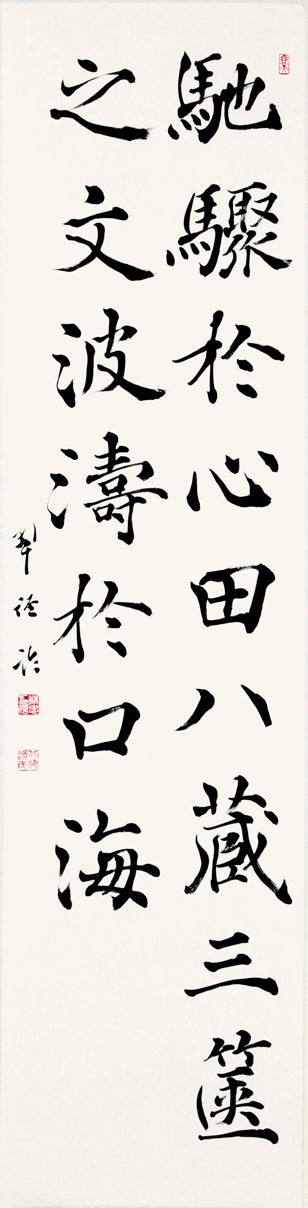 馳驟於心田八藏三篋
之文波濤於口海